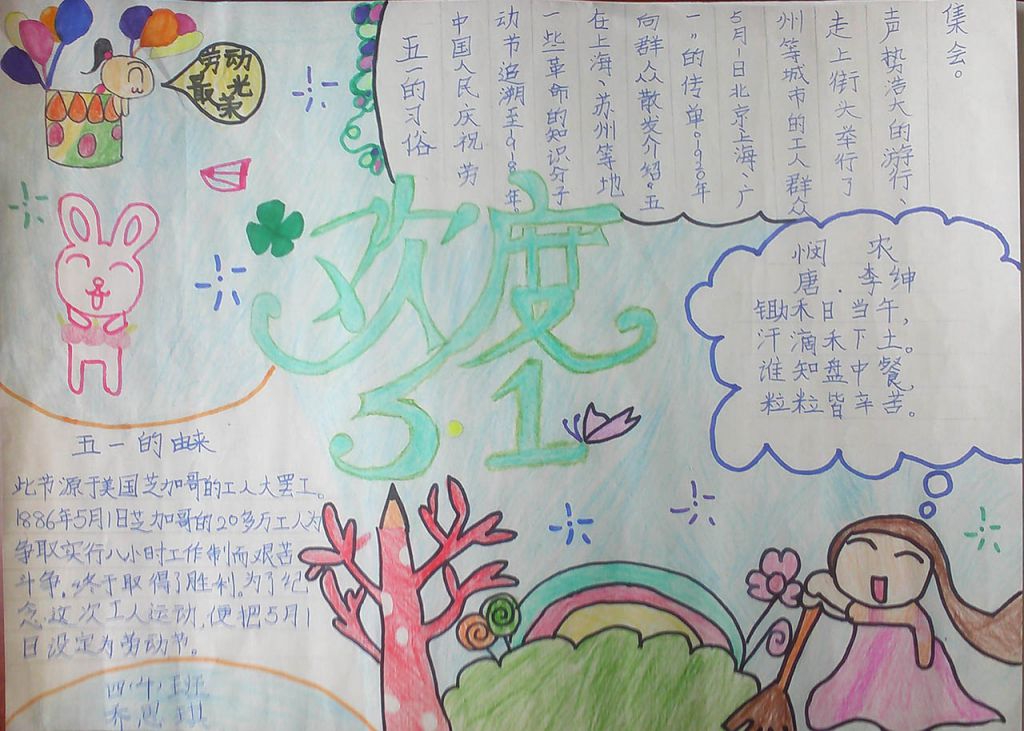 劳动
最光
荣
五一的习俗
中国人民庆祝劳
动节追溯至1918年。
一些革命的知识分子
在上海、苏州等地
向群众散发介绍“五
一”的传单。1920年
5月1日北京上海、广
州等城市的工人群众
走上街头举行了
声势浩大的游行、
集会。
欢度
5.1
悯农
唐.李绅
锄禾日当午,
汗滴禾下土。
谁知盘中餐,
粒粒皆辛苦。
五一的由来
此节源于美国芝加哥的工人大罢工。
1886年5月1日芝加哥的20多万工人为
争取实行八小时工作制而艰苦
斗争,终于取得了胜利。为了纪
念这次工人运动,便把5月1
日设定为劳动节。